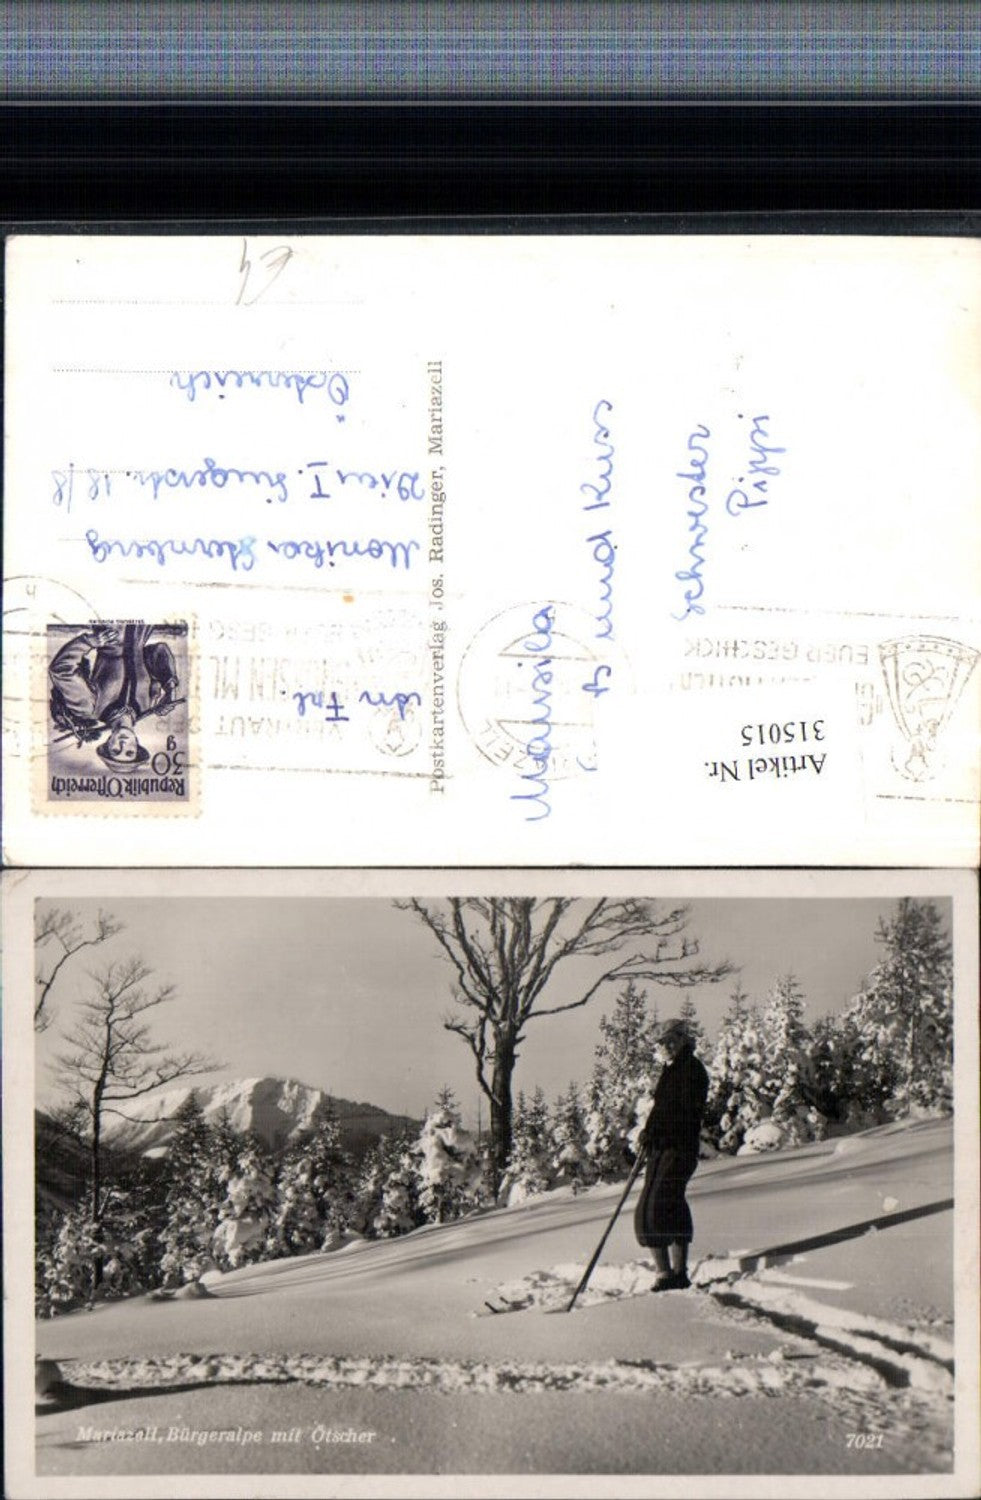 €4
Republik Österreich
30
g
An Frl.
Monika Sternberg
Wien I. Singerstr. 18/8
Österreich
Postkartenverlag Jos. Radinger, Mariazell
B und Kuss
Schwester
Pippi
EUER GESCHICK
Artikel Nr.
315015
Mariazell, Bürgeralpe mit Ötscher
7021